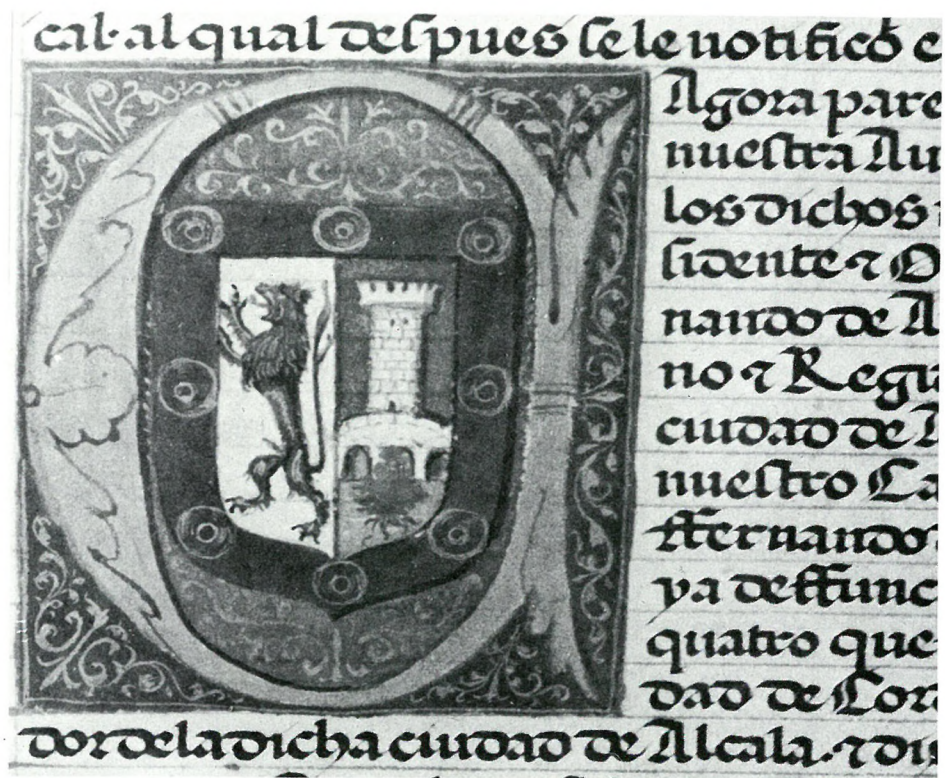 cal. al qual despues se le notificó e
Agora pare
nuestra Au
los dichos
sidente ⁊ O
nando de A
no ⁊ Regi
ciudad de
nuestro Ca
ffernando
ya deffunc
quatro que
dad de Cor
dor de la dicha ciudad de Alcala. ⁊ di